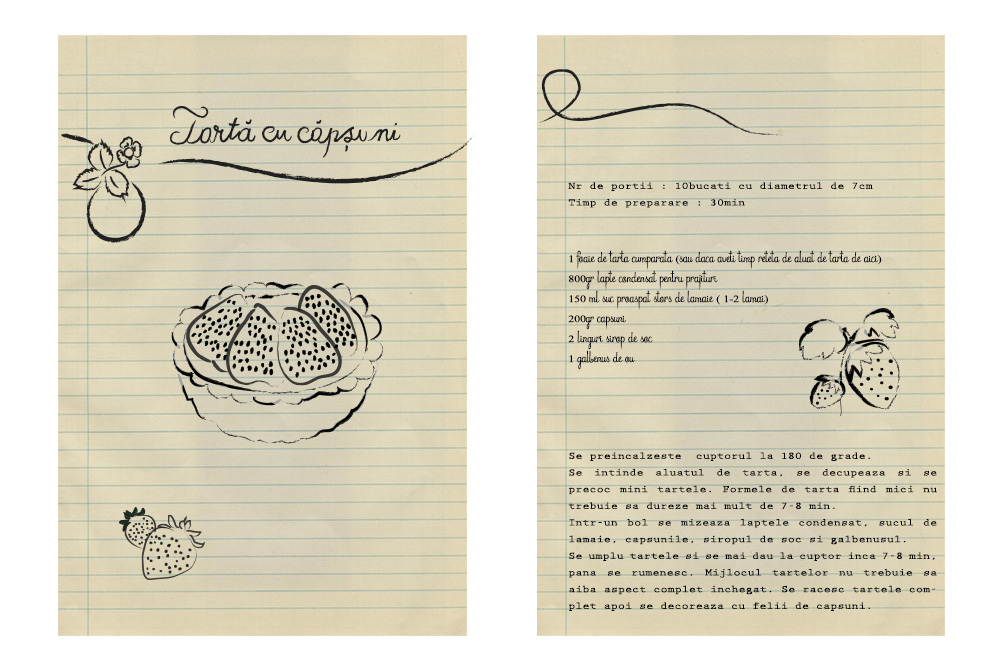 Tartă cu căpșuni
Nr de portii : 10bucati cu diametrul de 7cm
Timp de preparare : 30min
1 foaie de tarta cumparata (sau daca aveti timp reteta de aluat de tarta de aici)
800gr lapte condensat pentru prajituri
150 ml suc proaspat stors de lamaie ( 1-2 lamai)
200gr capsuni
2 linguri sirop de soc
1 galbenus de ou
Se preincalzeste cuptorul la 180 de grade.
Se intinde aluatul de tarta, se decupeaza si se
precoc mini tartele. Formele de tarta fiind mici nu
trebuie sa dureze mai mult de 7-8 min.
Intr-un bol se mizeaza laptele condensat, sucul de
lamaie, capsunile, siropul de soc si galbenusul.
Se umplu tartele si se mai dau la cuptor inca 7-8 min,
pana se rumenesc. Mijlocul tartelor nu trebuie sa
aiba aspect complet inchegat. Se racesc tartele com-
plet apoi se decoreaza cu felii de capsuni.